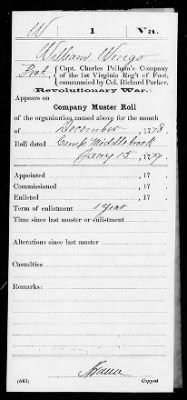 W | 1 | Va.
William Wingo
Pvt. { Capt. Charles Pelham's Company
of the 1st Virginia Reg't of Foot,
commanded by Col. Richard Parker.
Revolutionary War.
Appears on
Company Muster Roll
of the organization named above for the month
of December, 1778.
Roll dated Camp Middlebrook
Jany 15, 1779.
Appointed , 17
Commissioned , 17
Enlisted , 17
Term of enlistment 1 year
Time since last muster or enlistment
Alterations since last muster
Casualties
Remarks:
(545) Copyist.